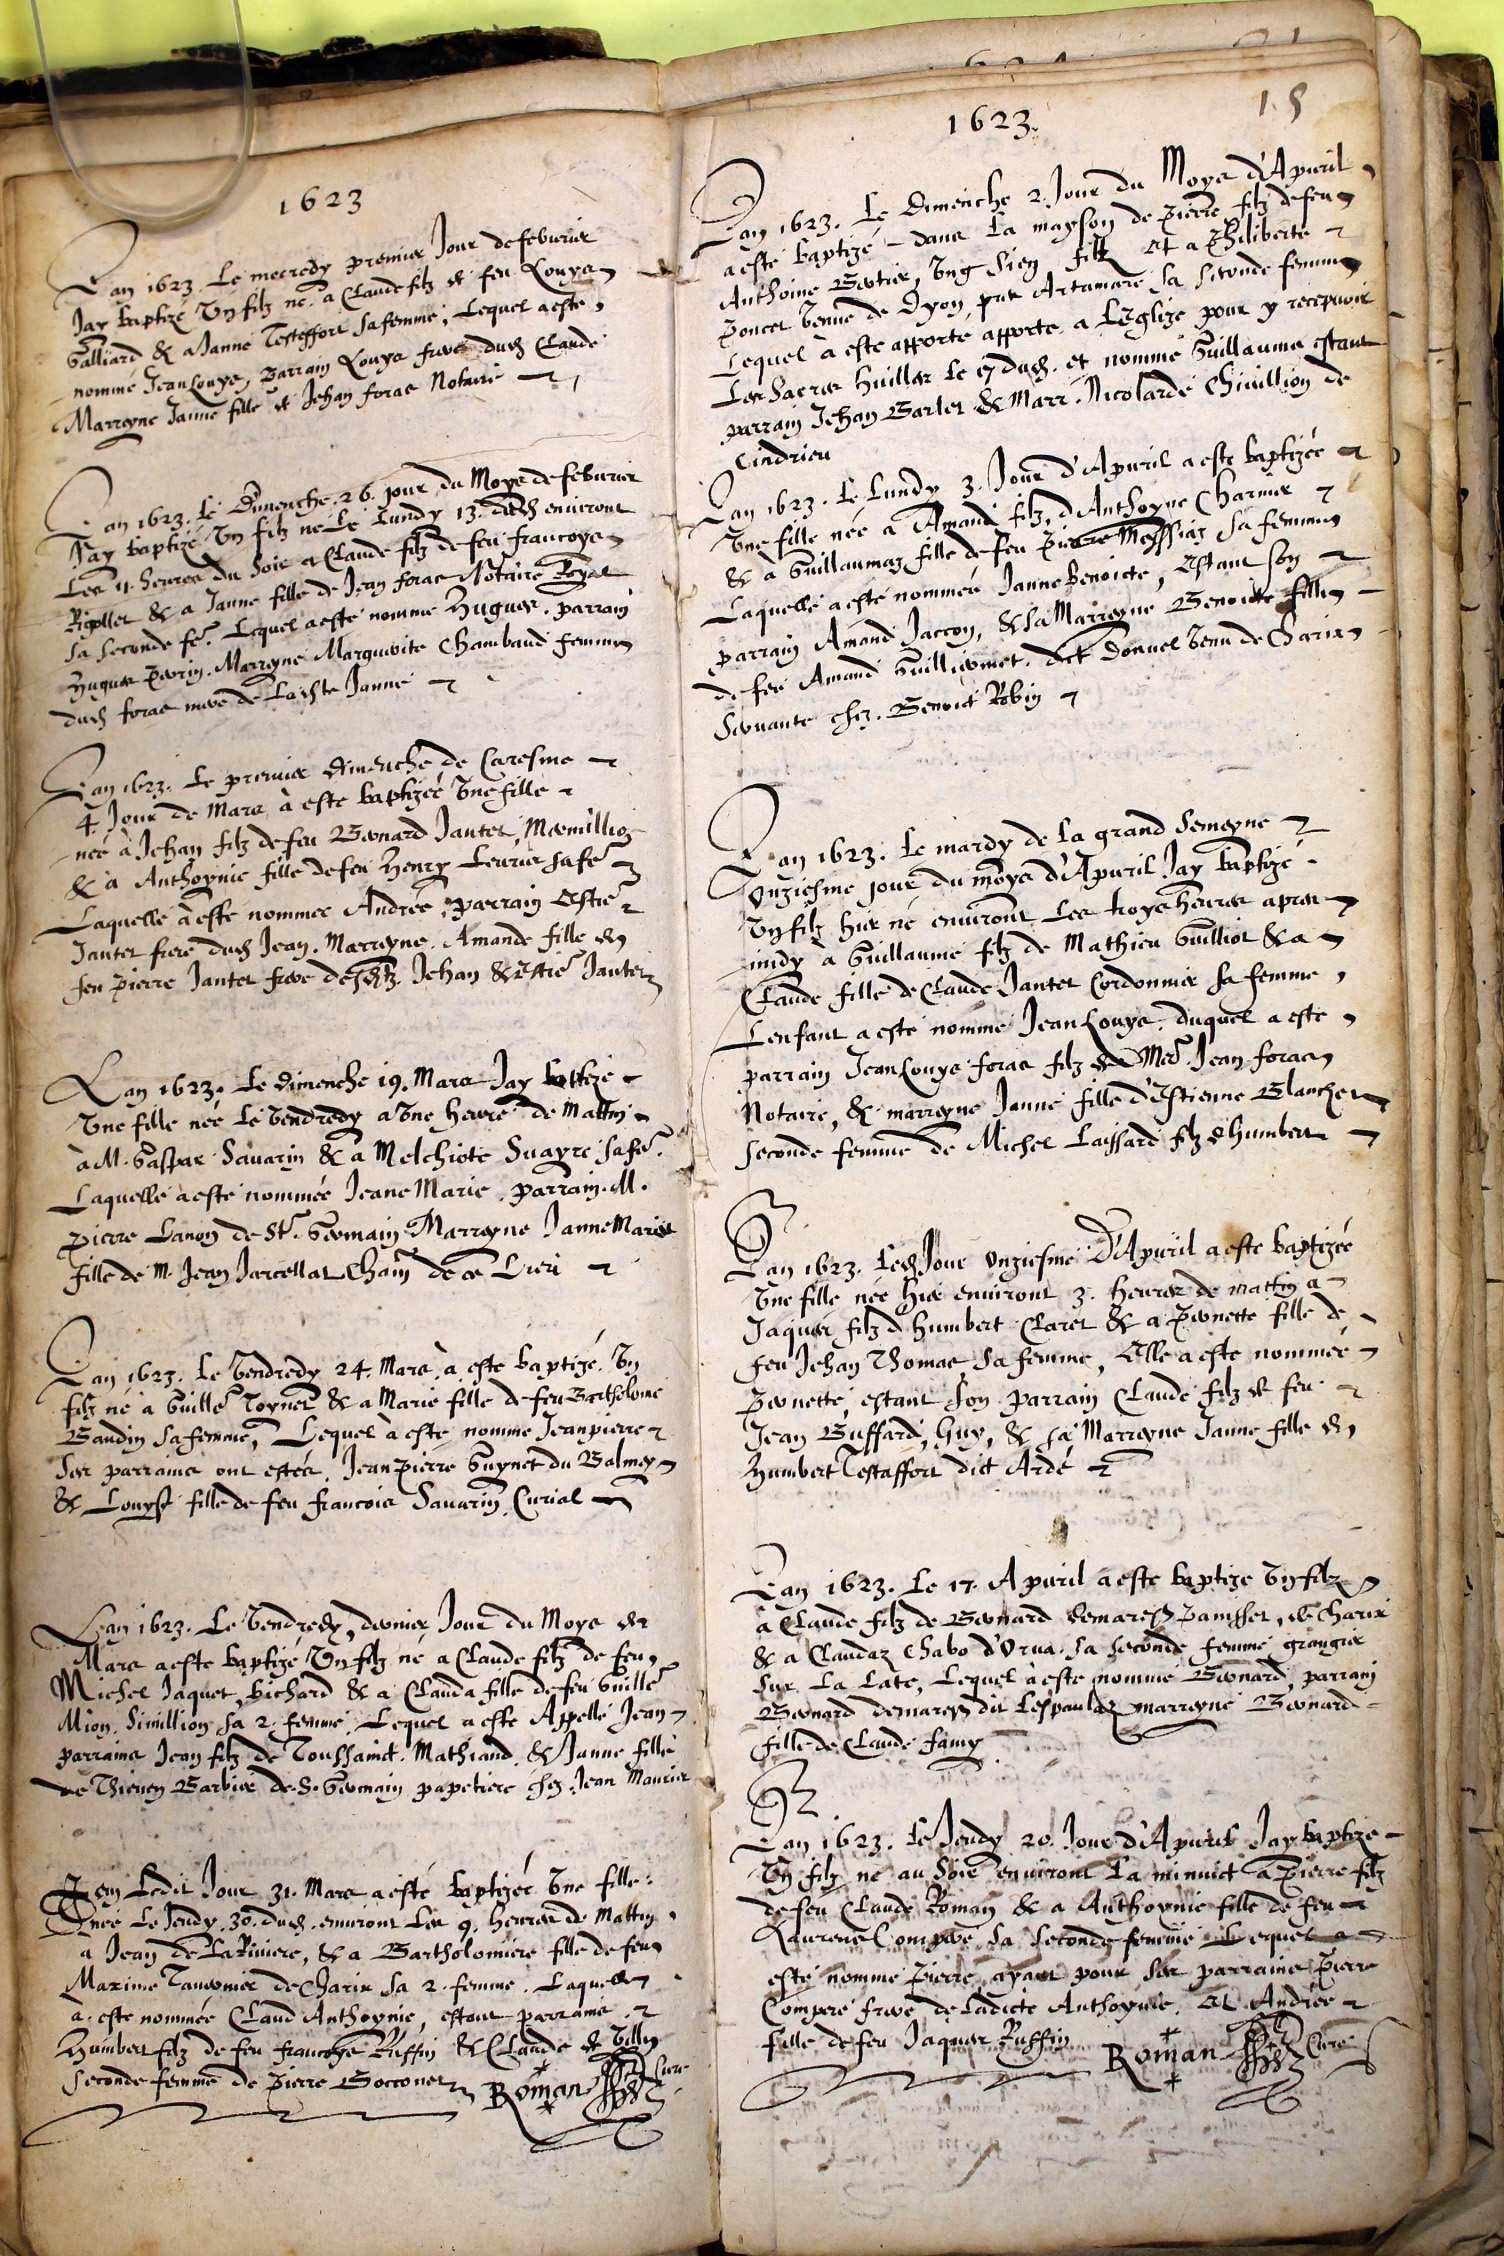 1623
Lan 1623. Le mecredy premier Jour de febvrier
Jay baptizé Un filz né a Claude filz de feu Louys
Galliard & a Janne Testeffort sa femme, Lequel a esté
nommé Jean Louys, Parrain Louys frere dud. Claude
Marreyne Janne fille de Jehan foras Notaire
Lan 1623. Le Dimenche 26. jour du Moys de febvrier
Jay baptizé Un filz né Le Lundy 13. dud. environt
Les 11 heures du soir a Claude filz de feu francoys
& a Janne fille de Jean foras Notaire Royal
sa seconde fe. Lequel a esté nommé Hugues. parrain
Hugues Perrin. Marreyne Marguerite Chambaud femme
dud. foras mere de Ladte Janne
Lan 1623. Le premier dimenche de Caresme
4. Jour de Mars à esté baptizée Une fille
née à Jehan filz de feu Bernard Jantet
& à Anthoynie fille de feu Henry Levrier sa fe
Laquelle à esté nommée Andrée, parrain Estie
Jantet frere dud. Jean. Marreyne. Amande fille de
feu pierre Jantet frere Jehan & Estie Jantet
Lan 1623. Le dimenche 19. Mars Jay baptizé
Une fille née Le Vendredy a Une heure de Mattin
à M. Gaspar Savarin & a Melchiote Suayre sa fe.
Laquelle a esté nommée Jeane Marie. parrain. M.
pierre Lanon de St. Germain Marreyne Janne Marie
fille de M. Jean Jarcellat de ce Lieu
Lan 1623. Le Vendredy 24. Mars à esté baptizé. Un
filz né à Guille Toynet & a Marie fille de feu Bartholome
Baudin sa femme, Lequel à esté nommé Jean pierre
Ses parrains ont estés, Jean Pierre Guynet du Balmey
& Louyse fille de feu francois Savarin Curial
Lan 1623. Le Vendredy, dernier Jour du Moys de
Mars a esté baptizé Un filz né a Claude filz de feu
Michel Jaquet, Bichard & a Clauda fille de feu Guille
Mion. Sivillion sa 2. femme. Lequel a esté Appellé Jean
parrains Jean filz de Toussainct. Mathiand. & Janne fille
de Thieven Barbier de S. Germain papetiere chez Jean Maurier
Item Ledit Jour 31. Mars a esté baptizée Une fille
née Le Jeudy. 30. dud. environt Les 9. heures de Mattin
a Jean de La Riviere, & a Bartholomiere fille de feu
Maxime Tavernier de Charix sa 2. femme. Laquelle
à esté nommée Claud Anthoynie, estant parrains
Humbert filz de feu francoys Ruffin & Claude de Tilly
seconde femme de Pierre Bocconet Roman Cure
1623.
15
Lan 1623. Le Dimenche 2. Jour du Moys d'Apvril
a esté baptizé dans La mayson de Pierre filz de feu
Anthoine Bertier, Ung sien filz et a Philiberte
Poncet Venue de Dyon, par Artamare sa seconde femme
Lequel à esté apporté apporté a L'Eglize pour y recepvoir
Les Sacres huilles Le 7 dud. et nommé Guillaume estant
parrain Jehan Barlet & Marr. Nicolarde Chivillion de
Cindrieu
Lan 1623. Le Lundy 3. Jour d'Apvril a esté baptizée
Une fille née a Amand filz, d'Anthoyne Charmier
& à Guillaumaz fille de feu Pierre Meyssiaz sa femme
Laquelle a esté nommée Janne benoicte, Estant son
parrain Amand Jaccon, & sa Marreyne Benoicte fille
de feu Amand Guilliermet. dict Donnel Venu de Charix
Servante chez. Benoict Robin
Lan 1623. Le mardy de La grand Semeyne
Onziesme jour du moys d'Apvril Jay baptizé
Un filz hier né environt Les troys heures apres
midy à Guillaume filz de Mathieu Guilliot & a
Claude fille de Claude Jantet Cordonnier sa femme
L'enfant a esté nommé Jean Louys. duquel a esté
parrain Jean Louys foras filz de Me Jean foras
Notaire, & marreyne Janne fille d'Estienne Blanchet
seconde femme de Michel Laissard filz d'humbert
Lan 1623. Led. Jour Onziesme D'Apvril a esté baptizée
Une fille née hier environt 3. heures de mattin a
Jaques filz d'humbert Claret & a Pernette fille de
feu Jehan Thomas sa femme, Elle a esté nommée
Pernette, estant son parrain Claude filz de feu
Jean Buffard, Guy, & sa Marreyne Janne fille de
Humbert Testaffort dict Ardé
Lan 1623. Le 17. Apvril a esté baptizé Un filz
à Claude filz de Bernard demares Panisset, de Charix
& a Claudaz Chabo d'Orua. sa seconde femme grangier
sur La Late, Lequel à esté nommé Bernard, parrain
Bernard demares dit Lespaulaz marreyne Bernarde
fille de Claude famy
Lan 1623. Le Jeudy 20. Jour d'Apvril Jay baptizé
Un filz né au Soir environt La minuict à Pierre filz
de feu Claude Roman & a Anthoynie fille de feu
Laurens Compere sa seconde femme Lequel a
esté nommé Pierre, ayant pour ses parrains Pierre
Compere frere de Ladicte Anthoynie, Et Andrée
fille de feu Jaques Ruffin Roman Cure